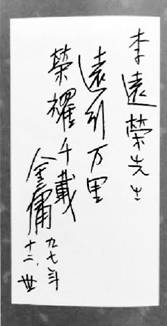 李遠榮先生
遠引万里
榮耀千載
金庸
九七年
十二、廿